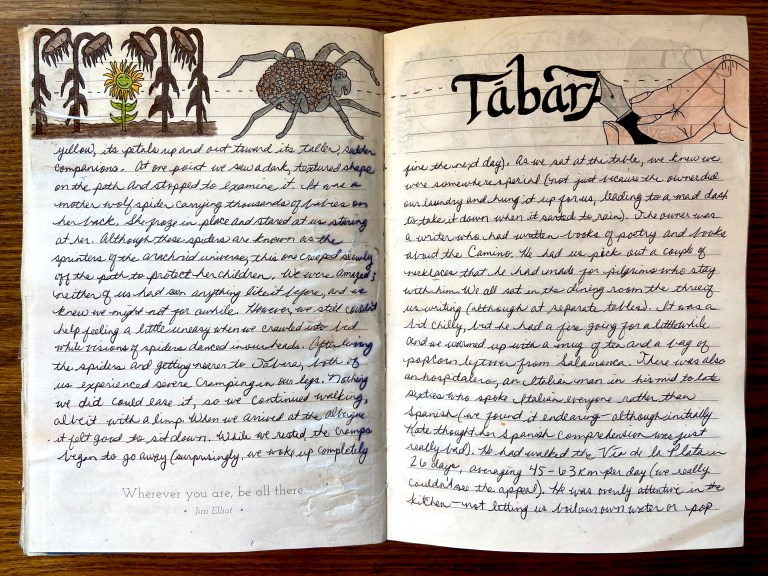 yellow, its petals up and out toward its taller, sadder
companions. At one point we saw a dark, textured shape
on the path and stopped to examine it. It was a
mother wolf spider carrying thousands of babies on
her back. She froze in place and stared at us staring
at her. Although these spiders are known as the
sprinters of the arachnid universe, this one creeped slowly
off the path to protect her children. We were amazed;
neither of us had seen anything like it before, and we
knew we might not for awhile. However, we still couldn't
help feeling a little uneasy when we crawled into bed
while visions of spiders danced in our heads. After leaving
the spiders and getting nearer to Tábara, both of
us experienced severe cramping in our legs. Nothing
we did could ease it, so we continued walking,
albeit with a limp. When we arrived at the albergue
it felt good to sit down. While we rested the cramps
began to go away (surprisingly, we woke up completely
Wherever you are, be all there.
• Jim Elliot •
Tábara
fine the next day). As we sat at the table, we knew we
were somewhere special (not just because the owner did
our laundry and hung it up for us, leading to a mad dash
to take it down when it started to rain). The owner was
a writer who had written books of poetry and books
about the Camino. He had us pick out a couple of
necklaces that he had made for pilgrims who stay
with him. We all sat in the dining room the three of
us writing (although at separate tables). It was a
bit chilly, but he had a fire going for a little while
and we warmed up with a mug of tea and a bag of
popcorn leftover from Salamanca. There was also
an hospitalero, an Italian man in his mid to late
sixties who spoke Italian everyone rather than
Spanish (we found it endearing – although initially
Kate thought her Spanish comprehension was just
really bad). He had walked the Vía de la Plata in
26 days, averaging 45-63 km per day (we really
couldn't see the appeal). He was overly attentive in the
kitchen – not letting us boil our own water or pop